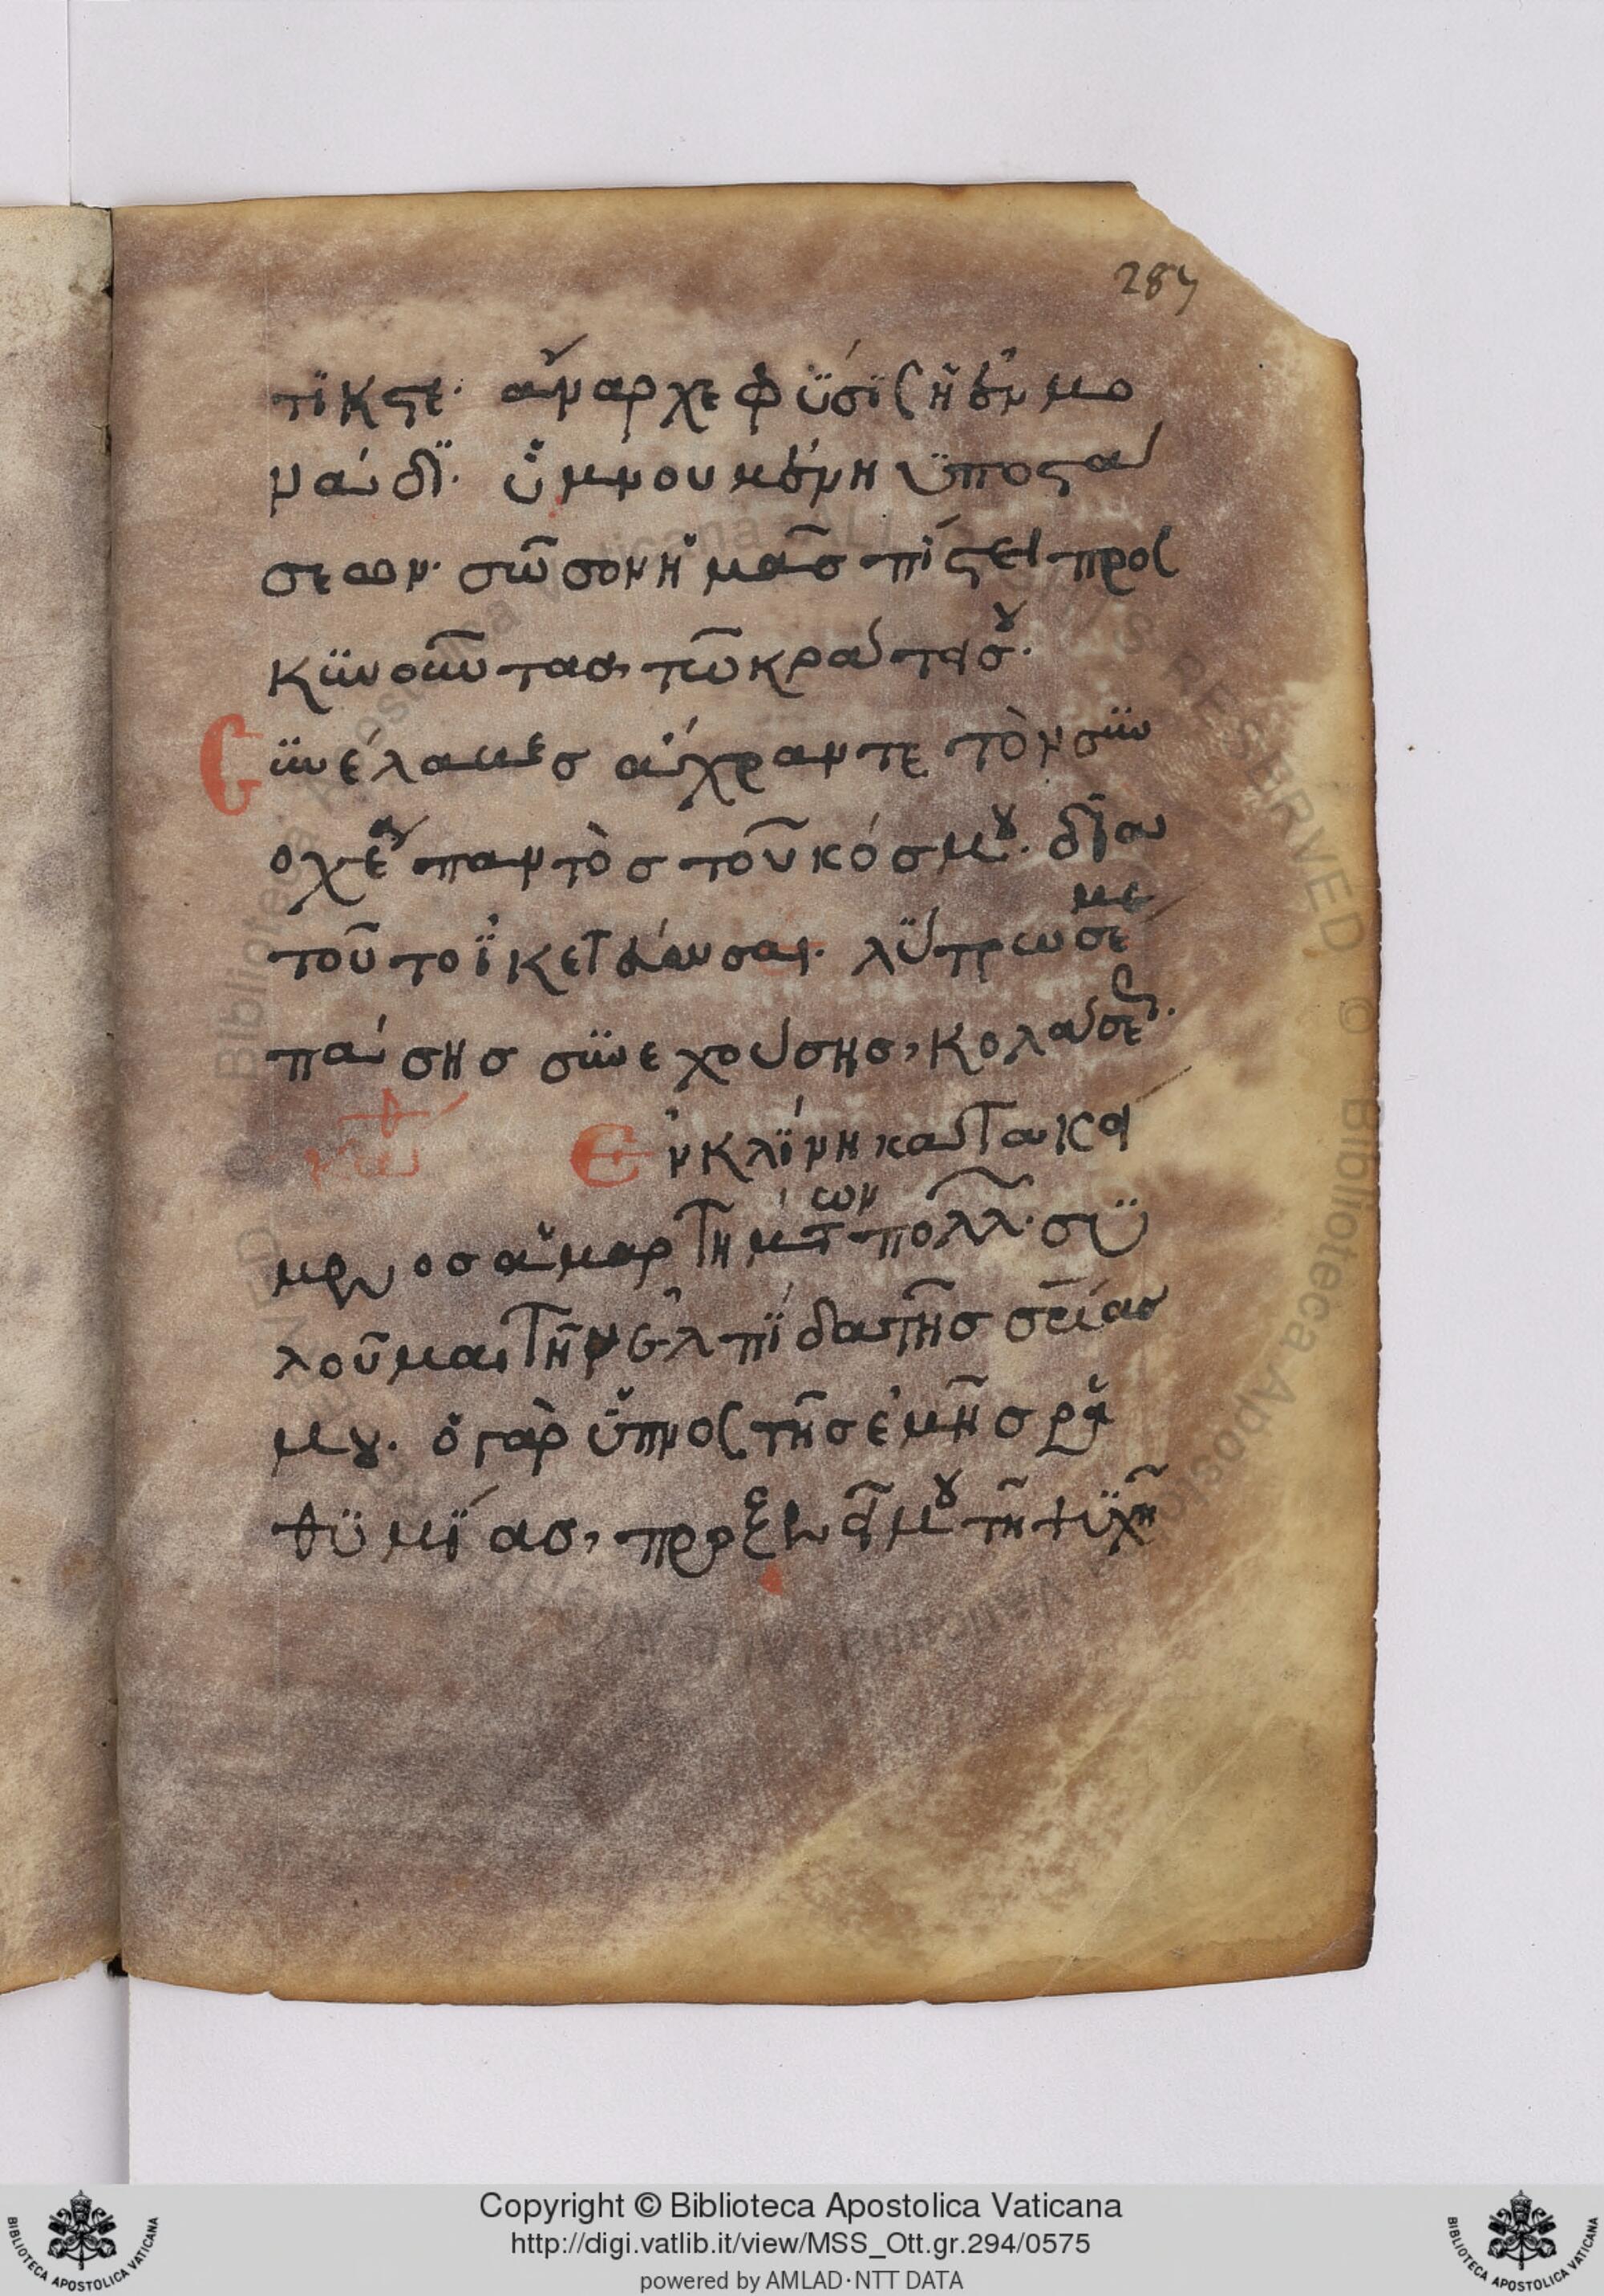 287
τϊκστε· ἄναρχε φϋσϊς ἡ ἐν μο
νάδϊ· ὑμνουμένη ὑποστα
σεων· σῶσον ἡμᾶσ πίστει προσ
κϋνοῦντασ, τῶ κράτει σου·
Συνέλαβεσ ἄχραντε τὸν συν
οχέα παντὸσ τοῦ κόσμου· δϊὰ
τοῦτο ἱκετεύω σαι· λύτρωσε με
πάσησ συνεχούσησ, κολάσεως·
Ἐν κλϊνη κατακεί
μενοσ ἁμαρτημάτων πολλ· συ
λοῦμαι τὴν ἐλπϊδα τῆσ σρίασ
μου· ὁ γὰρ ὕπνος τῆσ ἐμῆσ ρα
θυμϊασ, προξενεῖ μου τῆ ψυχῆ
Copyright © Biblioteca Apostolica Vaticana
http://digi.vatlib.it/view/MSS_Ott.gr.294/0575
powered by AMLAD·NTT DATA
BIBLIOTECA APOSTOLICA VATICANA
BIBLIOTECA APOSTOLICA VATICANA